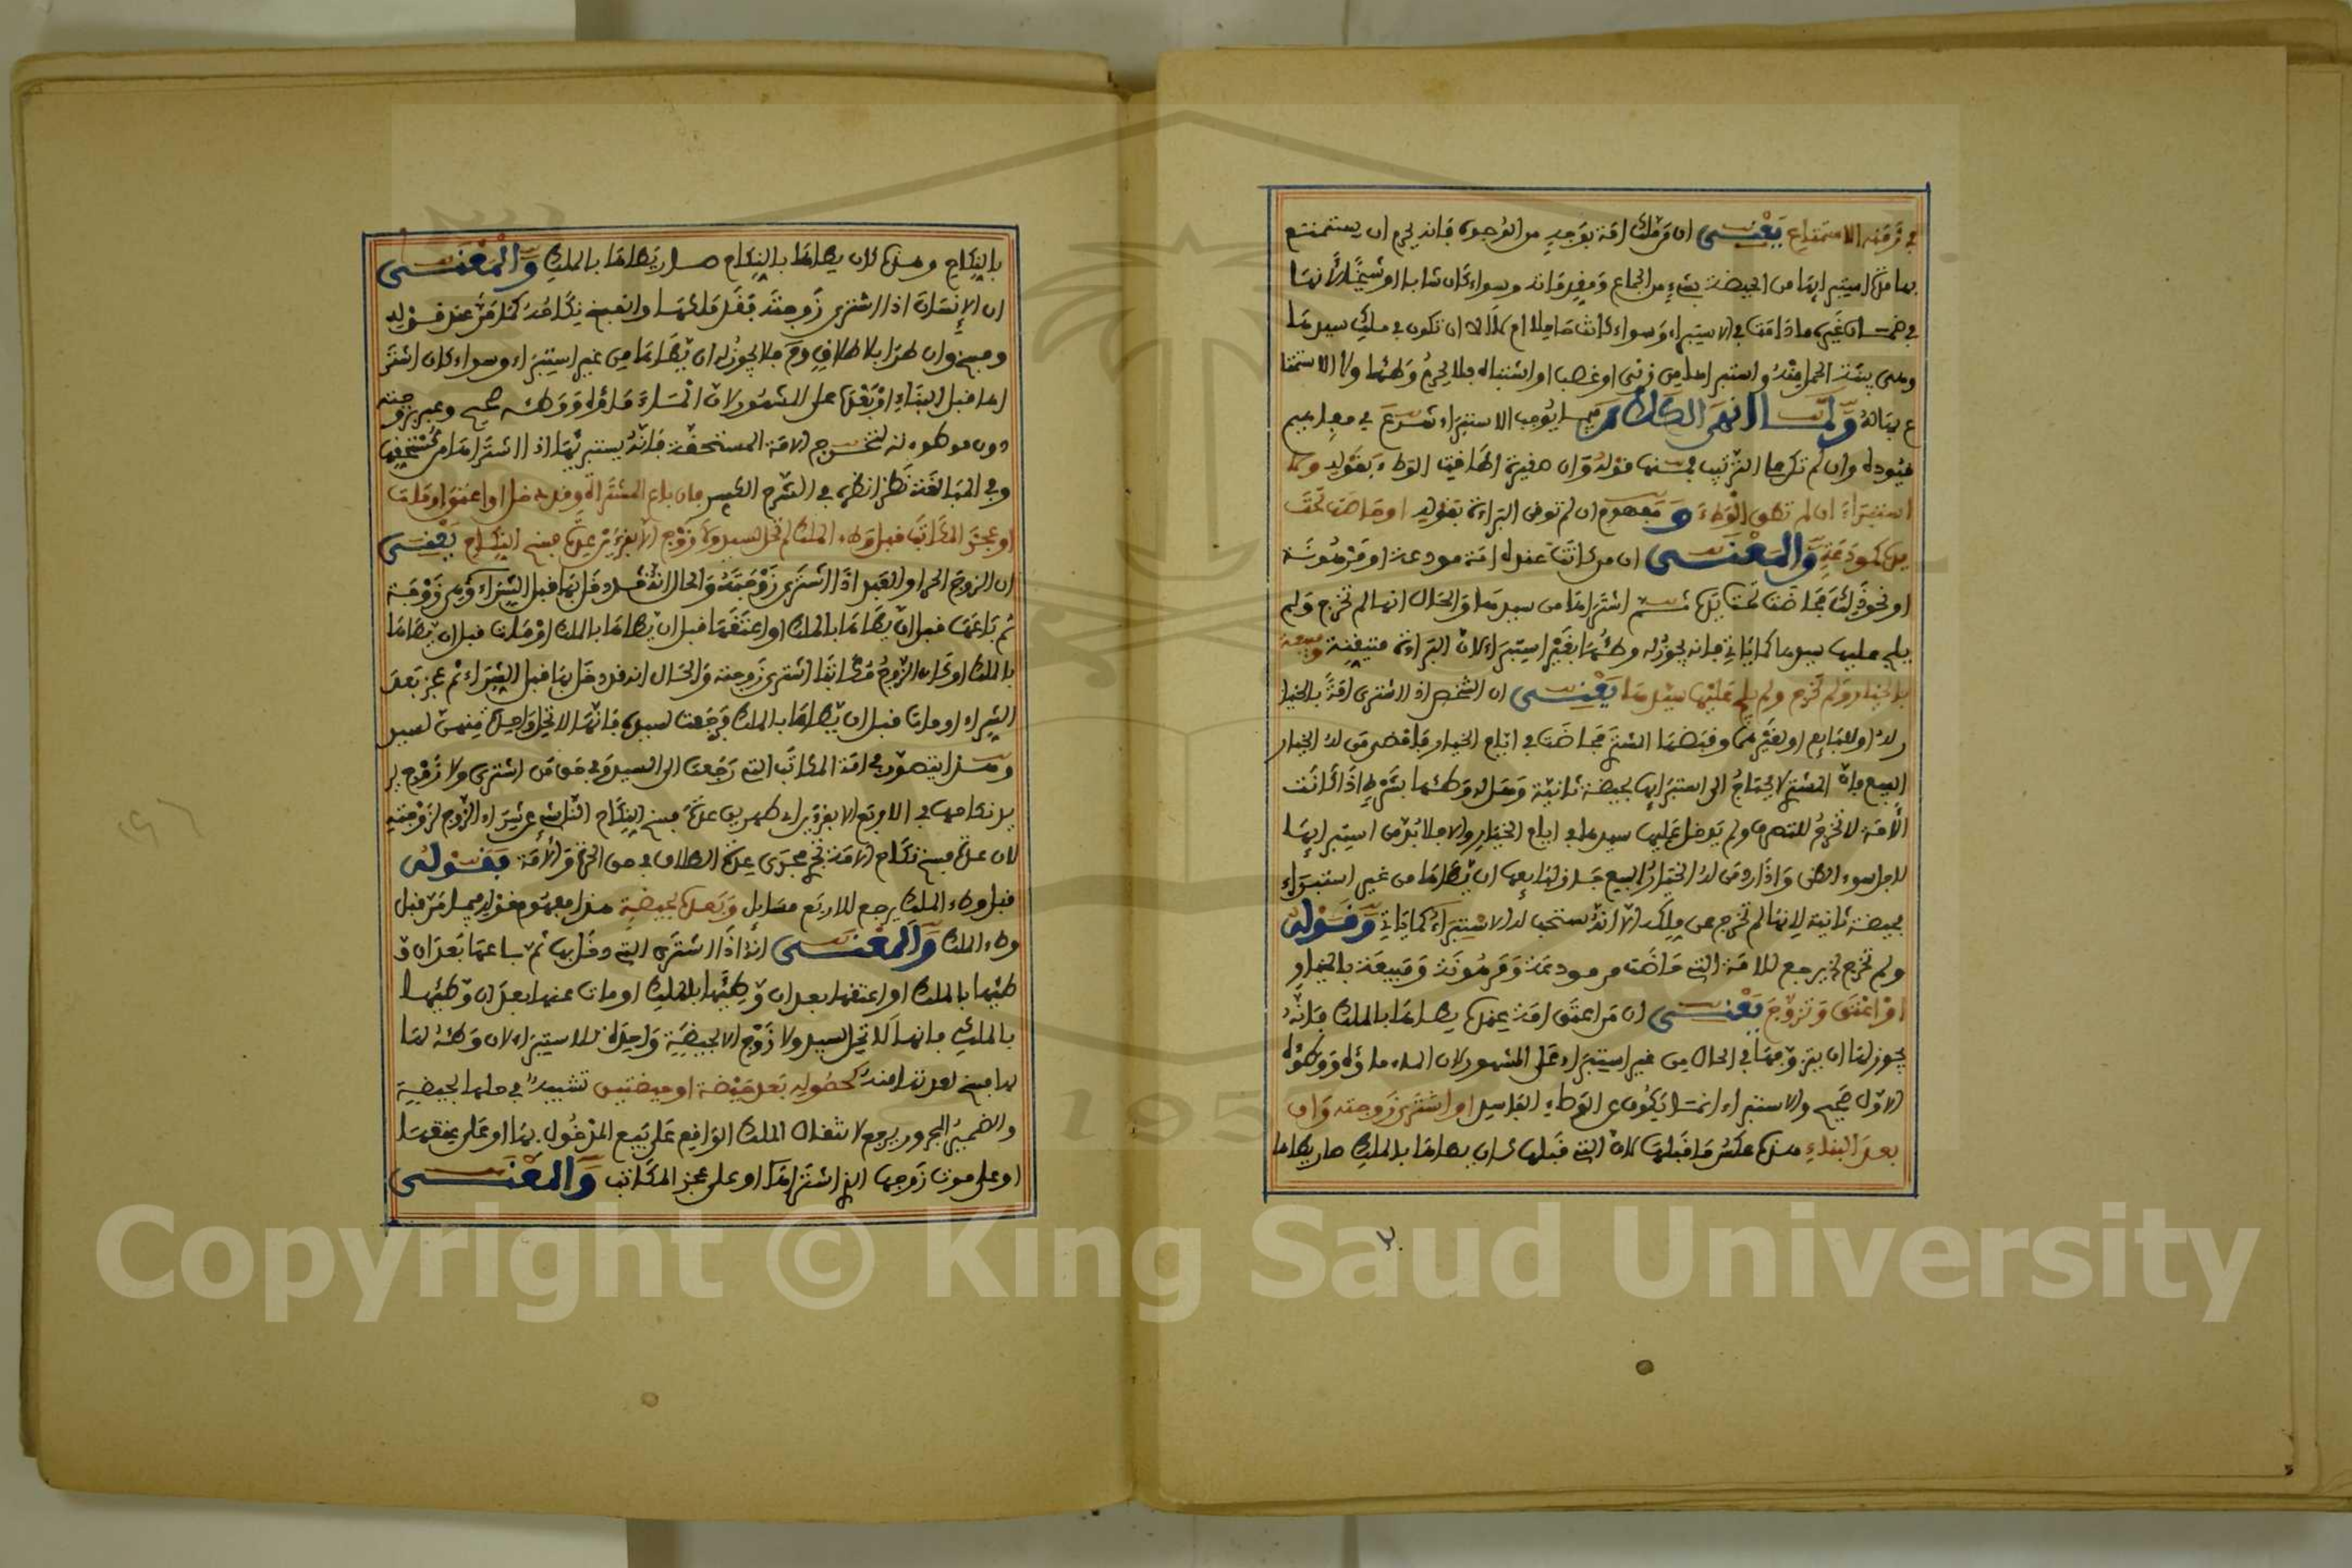 في زمنه الاستمتاع يعني ان من ملك امة بوجه من الوجوه فانه يحرم ان يستمتع
بها مدة استبرائها من الحيضة بشيء من الجماع ومقدماته وسواء كان شابا او شيخا لانها
في ضمان غيره ما دامت في الاستبراء وسواء كانت حاملا ام لا الا ان تكون في ملك سيدها
وهي بينة الحمل منه واستبراها من زنى او غصب او اشتباه فلا يحرم وطئها ولا الاستمتاع
بها ولما انهى الكلام فيما يوجب الاستبراء شرع في
قيوده وان لم تكن
استبراء ان لم تطق الوطء ومفهوم ان لم توقن البراءة بقوله او حاضت تحت
يده كمودعة والمعنى ان من كانت عنده امة مودعة او مرهونة
او نحو ذلك فحاضت تحت يده ثم اشتراها من سيدها والحال انها لم تخرج ولم
يلج عليها سيدها كما ياتي فانه يجوز له وطئها بغير استبراء لان البراءة متيقنة ومبيعة
بالخيار ولم تخرج ولم يلج عليها سيدها يعني ان الشخص اذا اشترى امة بالخيار
له او للبايع او لغيرهما وقبضها المشتري فحاضت في ايام الخيار فامضى من له الخيار
البيع فان المشتري لا يحتاج الى استبرائها بحيضة ثانية وحل له وطئها بشرط اذا كانت
الامة لا تخرج للتصرف ولم يدخل عليها سيدها في ايام الخيار والا فلا بد من استبرائها
لاجل سوء الظن واذا رد من له الخيار البيع جاز لبايعها ان يطاها من غير استبراء
بحيضة ثانية لانها لم تخرج عن ملكه الا انه يستحب له الاستبراء كما ياتي وقوله
ولم تخرج يرجع للامة التي حاضت من مودعة ومرهونة ومبيعة بالخيار
او اعتق وتزوج يعني ان من اعتق امة عنده يطاها بالملك فانه
يجوز له ان يتزوجها في الحال من غير استبراء على المشهور لان الماء ماؤه ووطئه
الاول صحيح والاستبراء انما يكون عن الوطء الفاسد او اشترى زوجته وان
بعد البناء هذه عكس ما قبلها لان التي قبلها كان يطاها بالملك صار يطاها
بالنكاح وهذه كان يطاها بالنكاح صار يطاها بالملك والمعنى
ان الانسان اذا اشترى زوجته فقد ملكها وانفسخ نكاحه كما مر عند قوله
وفسخ وان طرا بلا طلاق فلا يجوز له ان يطاها من غير استبراء وسواء كان اشتراها
قبل البناء او بعده على المشهور لان الماء ماؤه ووطئه صحيح وعبر بزوجته
دون موطوءته لتخرج الامة المستحقة فانه يستبرئها اذا اشتراها من مستحقها
وفي المبالغة نظر انظره في الشرح الكبير فان باع المشتراة وقد دخل او اعتق او مات
او عجز المكاتب قبل وطء الملك لم تحل لسيد ولا زوج الا بقرءين عدة فسخ النكاح يعني
ان الزوج الحر او العبد اذا اشترى زوجته والحال انه قد دخل بها قبل الشراء وهي زوجة
ثم باعها قبل ان يطاها بالملك او اعتقها قبل ان يطاها بالملك او مات قبل ان يطاها
بالملك او كان الزوج مكاتبا اشترى زوجته والحال انه قد دخل بها قبل الشراء ثم عجز بعد
الشراء او مات قبل ان يطاها بالملك فرجعت لسيده فانها لا تحل واحدة منهن لسيد
وهذا يتصور في امة المكاتب التي رجعت الى السيد وفي حق من اشترى ولا زوج يريد
نكاحها في الاربع الا بقرءين اي طهرين عدة فسخ النكاح الناشئ عن شراء الزوج لزوجته
لان عدة فسخ نكاح الامة تجري مجرى عدة الطلاق في حق الحرة والامة فقوله
قبل وطء الملك يرجع للاربع مسايل وبعده بحيضة هذا مفهوم قوله فيما مر قبل
وطء الملك والمعنى انه اذا اشترى التي دخل بها ثم باعها بعد ان
وطئها بالملك او اعتقها بعد ان وطئها بالملك او مات عنها بعد ان وطئها
بالملك فانها لا تحل لسيد ولا زوج الا بحيضة واحدة للاستبراء لان وطئه لها
هادم لعدة فسخ كحصوله بعد حيضة او حيضتين تشبيه في حلها بحيضة
والضمير المجرور يرجع لانتقال الملك الواقع على بيع المدخول بها او على عتقها
او على موت زوجها الذي اشتراها او على عجز المكاتب والمعنى